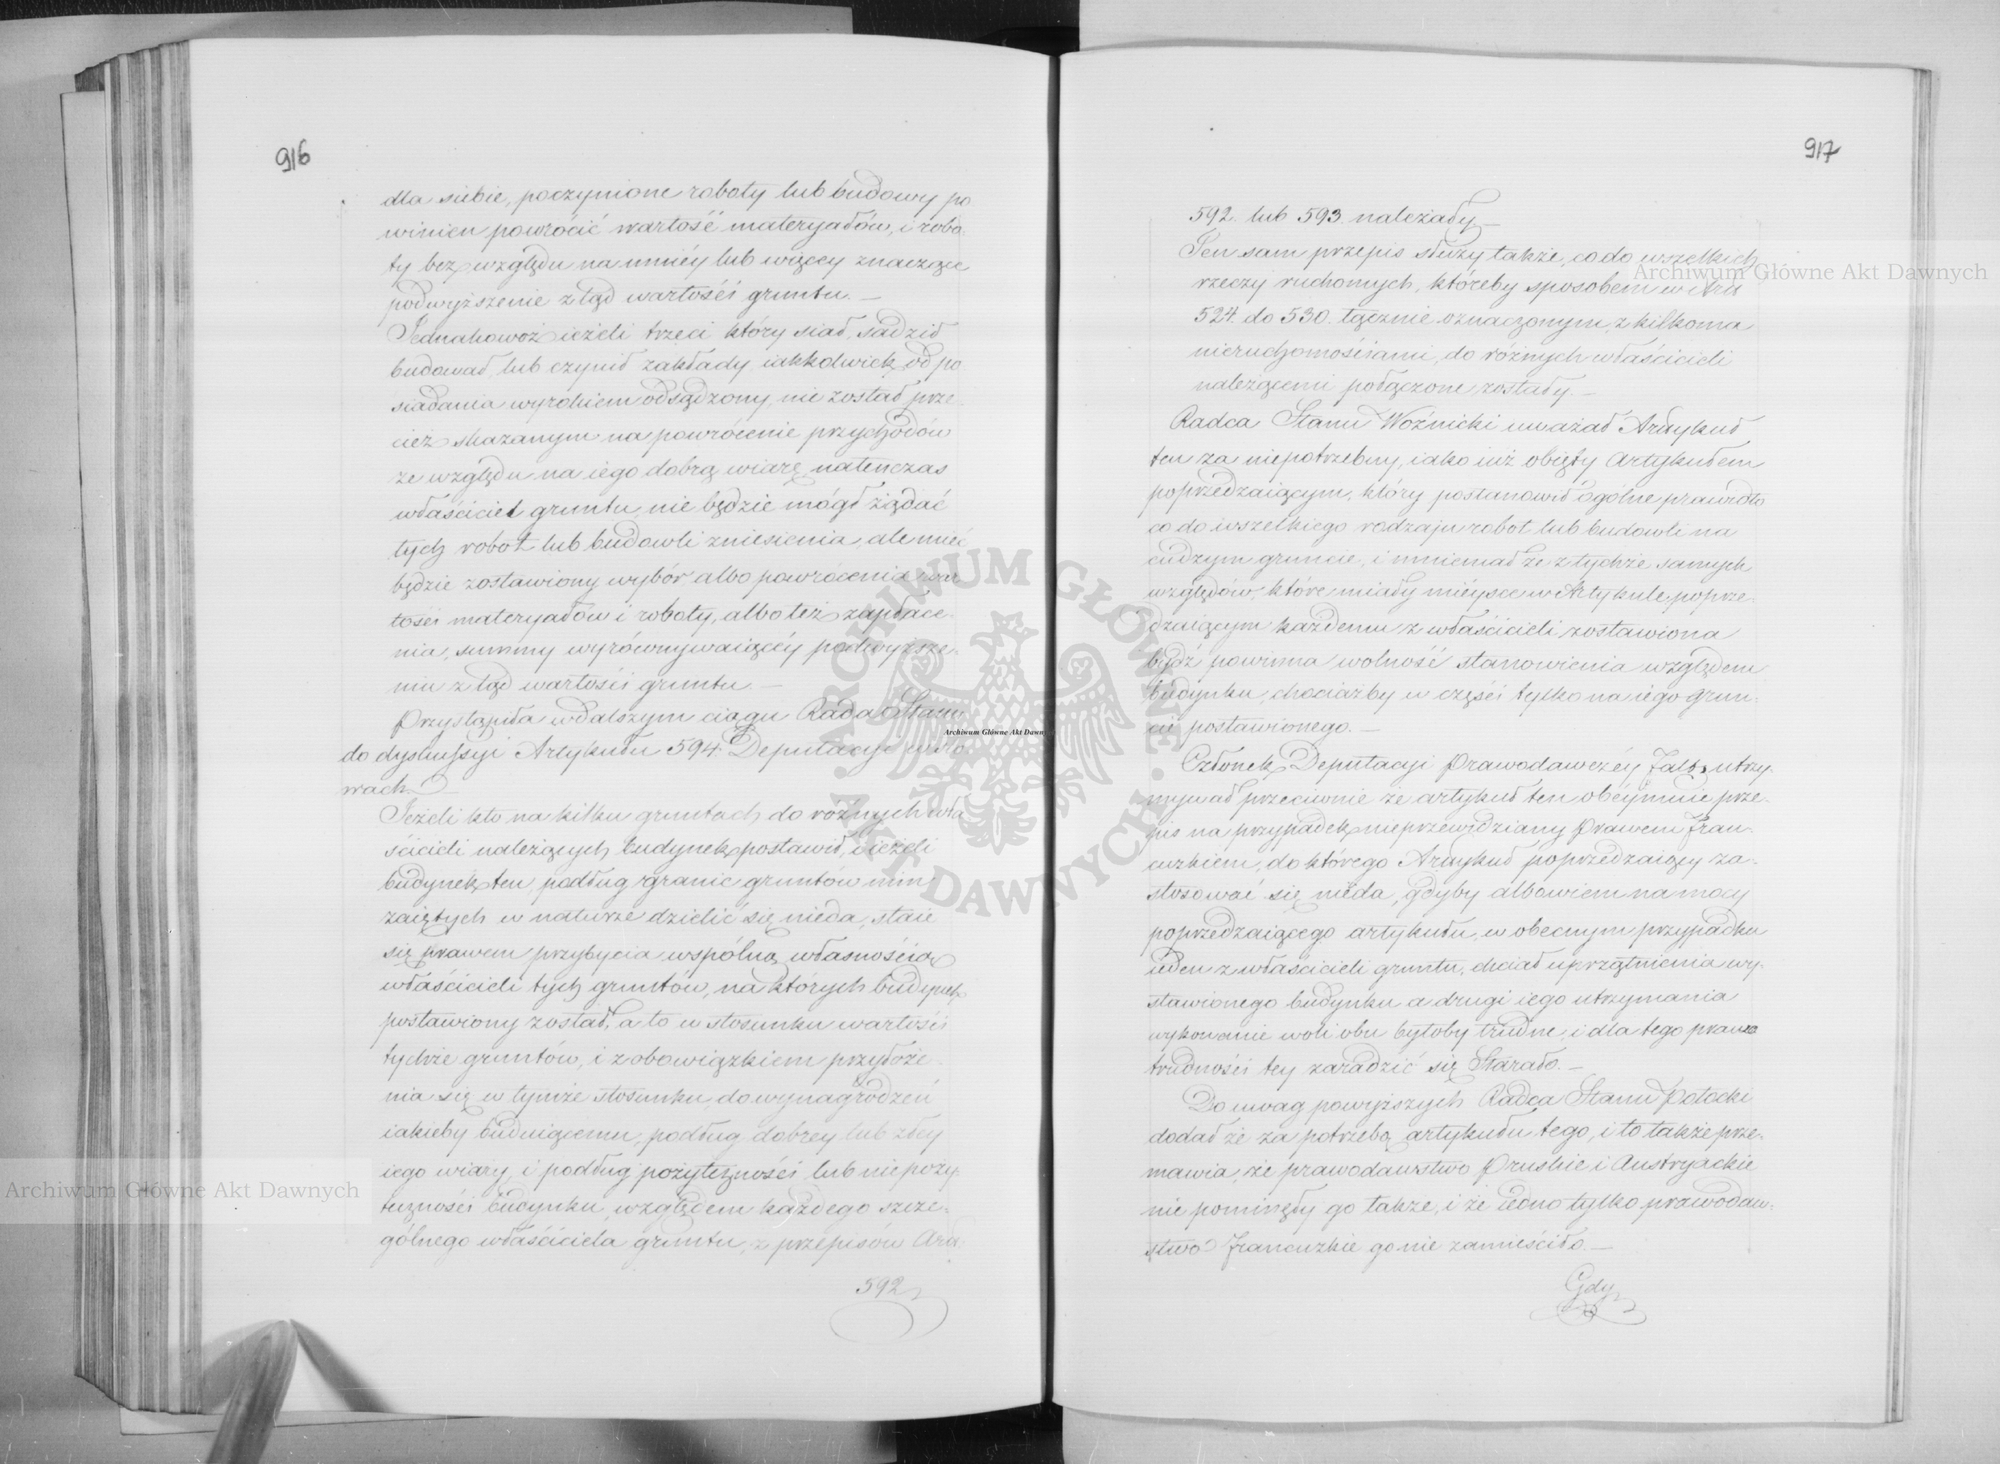 916
dla siebie, poczynione roboty lub budowy po
winien powrócić wartość materyałów, i robo
ty bez względu na mniéy lub więcey znaczące
podwyższenie ztąd wartości gruntu. —
Jednakowoż ieżeli trzeci który siał, sadził
budował, lub czynił zakłady, iakkolwiek od po
siadania wyrokiem odsądzony, nie został prze
cież skazanym na powrócenie przychodów
ze względu na iego dobrą wiarę, natenczas
właściciel gruntu, nie będzie mógł żądać
tych robot lub budowli zniesienia, ale mieć
będzie zostawiony wybór albo powrócenia war
tości materyałów i roboty, albo też zapłace-
nia, summy wyrównywaiącéy podwyższe-
niu ztąd wartości gruntu. —
Przystąpiła w dalszym ciągu Rada Stanu
do dyskussyi Artykułu 594. Deputacyi w sło
wach. —
Jeżeli kto na kilku gruntach do różnych wła
ścicieli należących budynek postawił, i ieżeli
budynek ten, podług granic gruntów nim
zaiętych w naturze dzielić się nieda, staie
się prawem przybycia wspólną własnością
właścicieli tych gruntów, na których budynek
postawiony został, a to w stosunku wartości
tychże gruntów, i z obowiązkiem przyłoże-
nia się w tymże stosunku, do wynagrodzeń
iakieby buduiącemu, podług dobrey lub złey
iego wiary, i podług pożyteczności lub niepoży
teczności budynku, względem każdego szcze-
gólnego właściciela gruntu, z przepisów Art.
592
917
592. lub 593. należały. —
Ten sam przepis służy także, co do wszelkich
rzeczy ruchomych, któreby sposobem w Art.
524. do 530. łącznie oznaczonym, z kilkoma
nieruchomościami, do różnych właścicieli
należącemi połączone zostały. —
Radca Stanu Woźnicki uważał Artykuł
ten za niepotrzebny, iako iuż obięty Artykułem
poprzedzaiącym, który postanowił ogólne prawidło
co do wszelkiego rodzaju robot lub budowli na
cudzym gruncie, i mniemał że z tychże samych
względów, które miały mieysce w Artykule poprze-
dzaiącym każdemu z właścicieli zostawiona
bydź powinna wolność stanowienia względem
budynku, chociażby w części tylko na iego grun-
cie postawionego. —
Członek Deputacyi Prawodawczéy Falz utrzy-
mywał przeciwnie że artykuł ten obéymuie prze-
pis na przypadek nieprzewidziany Prawem Fran-
cuzkiem, do którego Artykuł poprzedzaiący za-
stosować się nieda, gdyby albowiem na mocy
poprzedzaiącego artykułu, w obecnym przypadku
ieden z właścicieli gruntu, chciał uprzątnienia wy-
stawionego budynku a drugi iego utrzymania
wykonanie woli obu byłoby trudne, i dla tego prawo
trudności tey zaradzić się starało. —
Do uwag powyższych Radca Stanu Potocki
dodał że za potrzebą artykułu tego, i to także prze-
mawia, że prawodawstwo Pruskie i Austryackie
nie pominęły go także, i że iedno tylko prawodaw-
stwo Francuzkie go nie zamieściło. —
Gdy
Archiwum Główne Akt Dawnych
Archiwum Główne Akt Dawnych
Archiwum Główne Akt Dawnych
ARCHIWUM GŁÓWNE AKT DAWNYCH